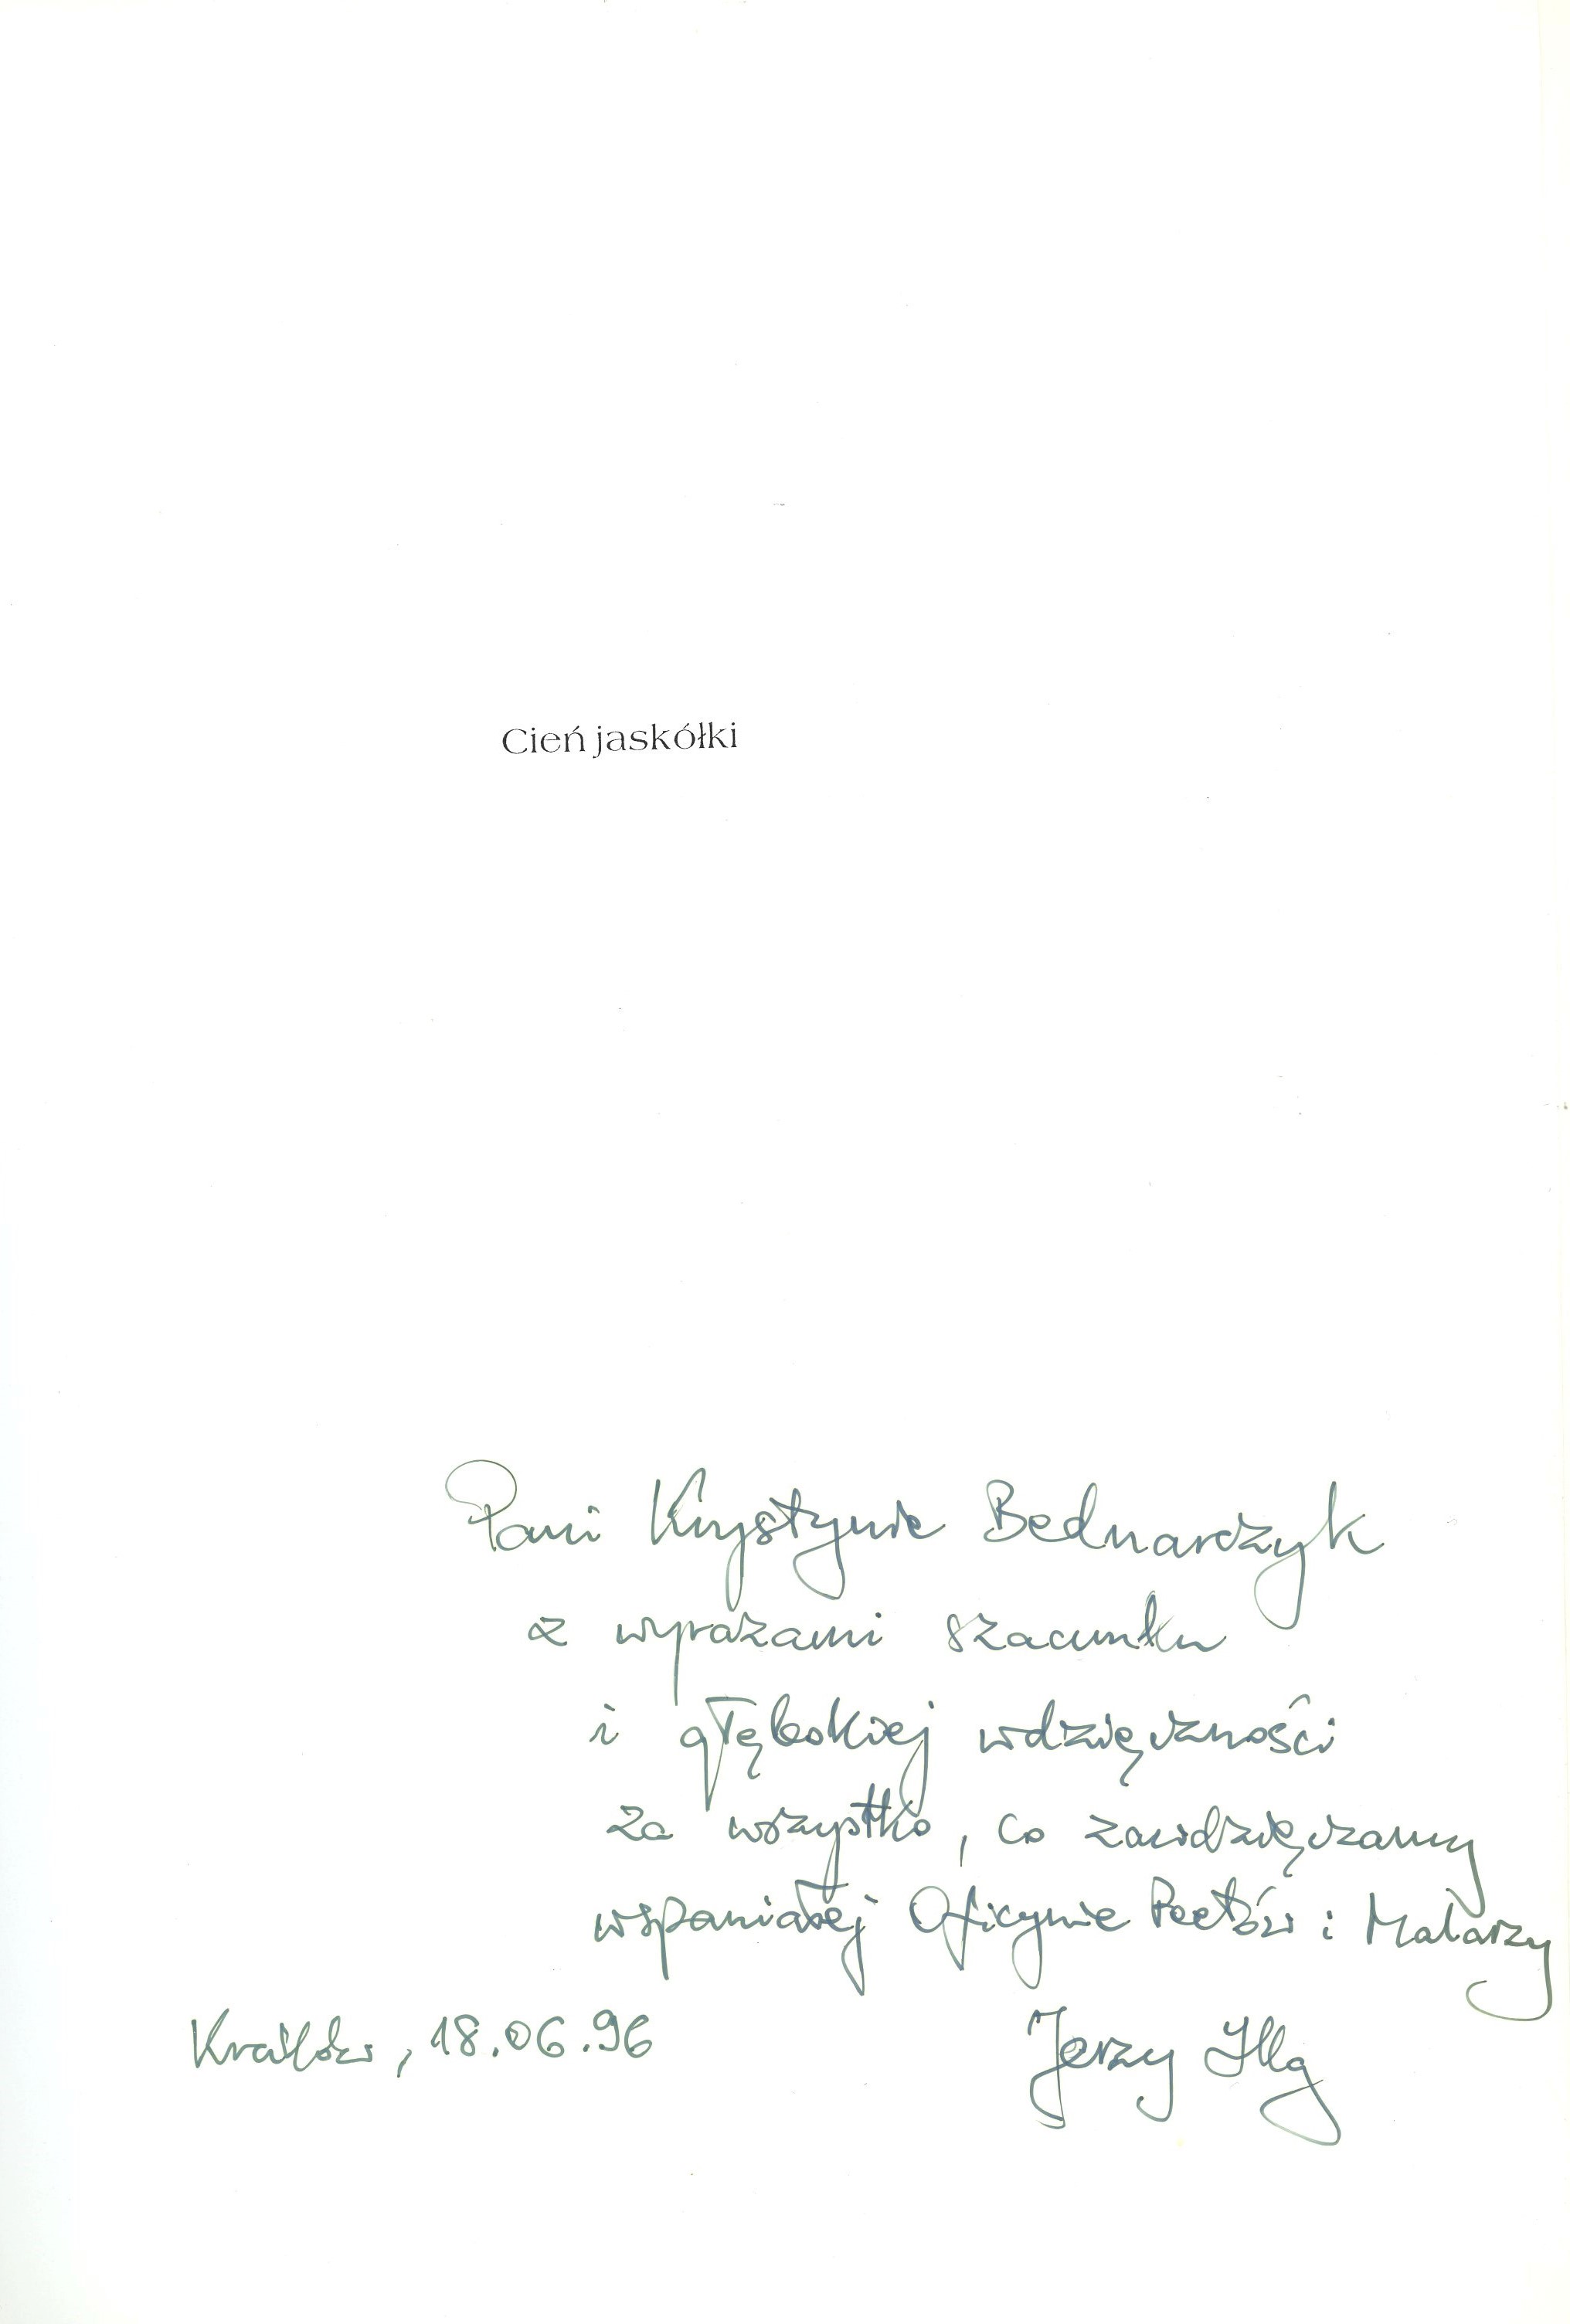 Cień jaskółki
Pani Krystynie Bednarczyk
z wyrazami szacunku
i głębokiej wdzięczności
za wszystko, co zawdzięczamy
wspaniałej Oficynie Poetów i Malarzy
Kraków, 18.06.96
Jerzy Illg